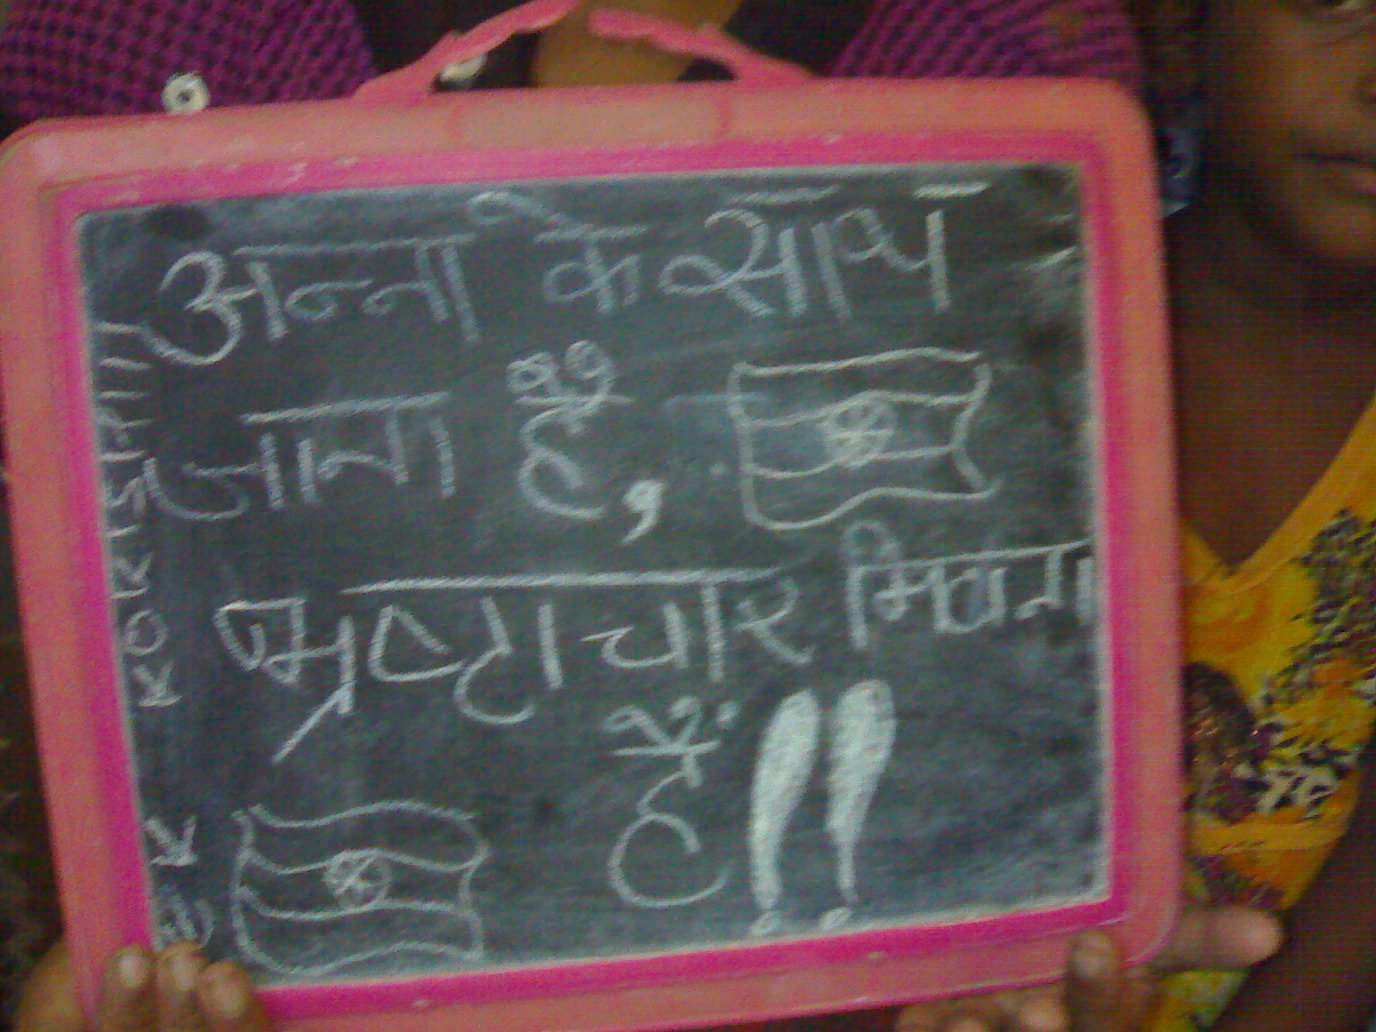 अन्ना के साथ
जाना है,
भ्रष्टाचार मिटाना
है !!